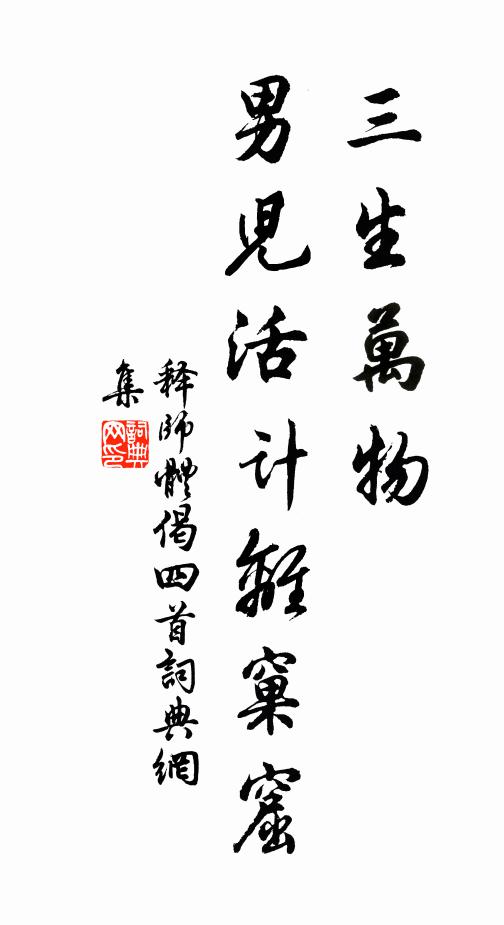 三生萬物
男児活计離窠窟
释师體偈四首詞典網
集
詞典网印